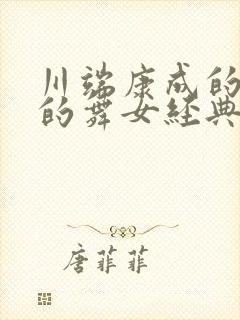 川端康成的
的舞女经典
唐菲菲